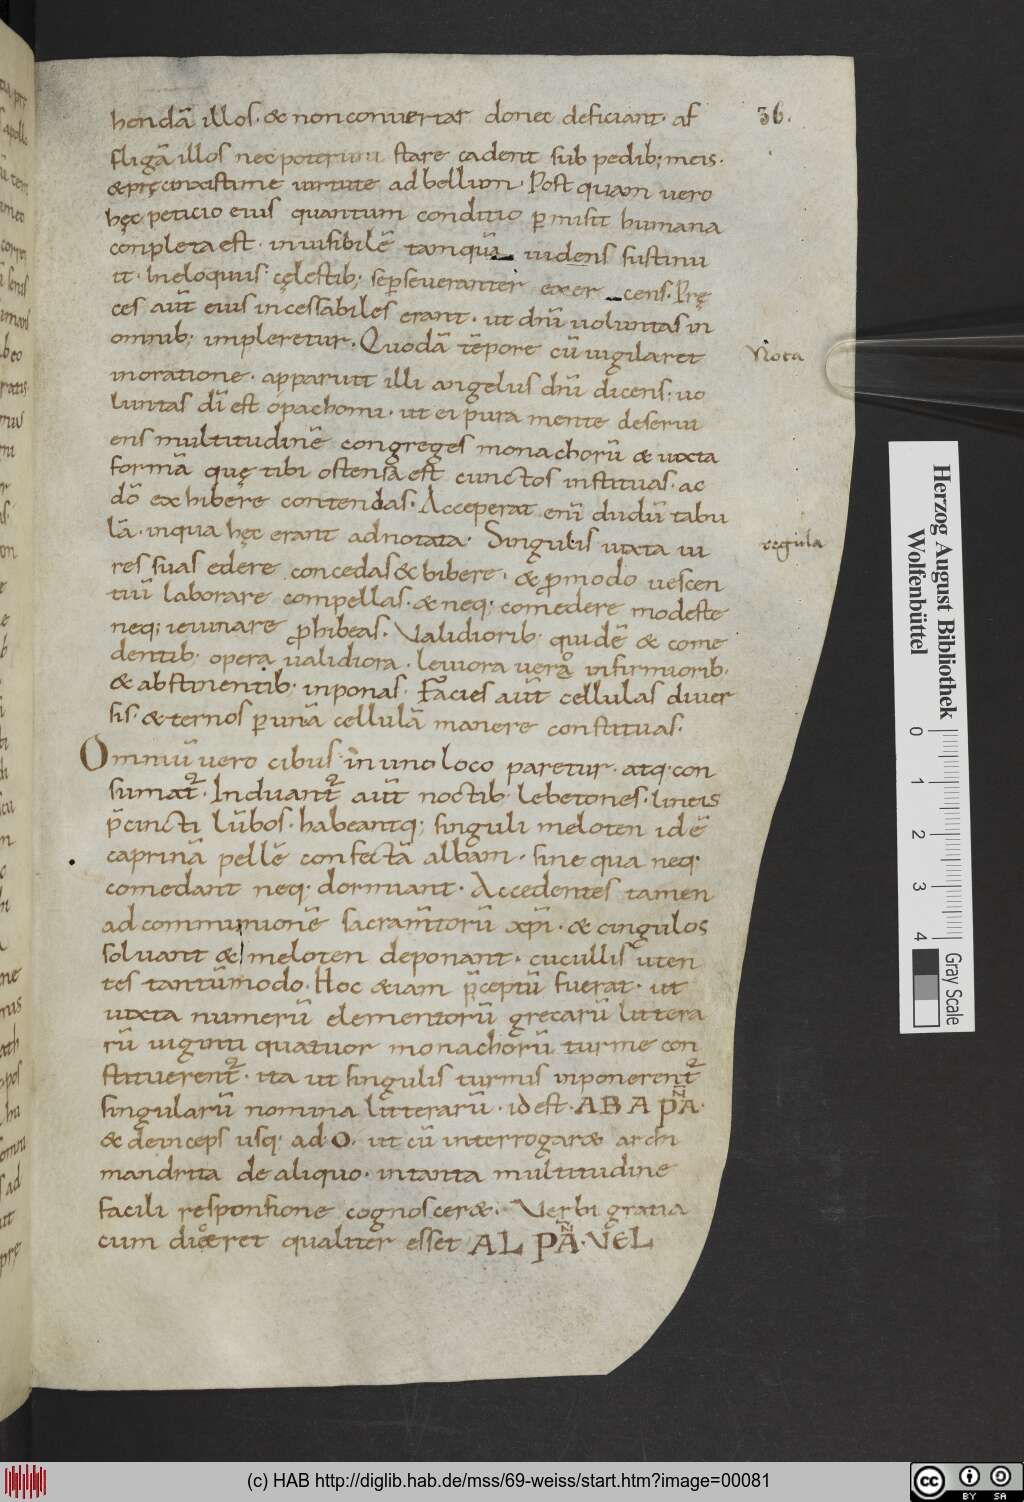 36.
hendā illos· & non convertar donec deficiant· af
fligā illos nec poterunt stare cadent sub pedib; meis·
& pręcinxisti me virtute ad bellum· Post quam vero
hęc peticio eius quantum conditio p̱misit humana
conpleta est· invisibilē tamquā videns sustinu
it· In eloquiis cęlestib; sep̱severanter exer cens· Pre̜
ces aut̄ eius incessabiles erant· ut dn̄i voluntas in
omnib; impleretur· Quodā tēpore cū vigilaret
Nota
in oratione· apparuit illi angelus dn̄i dicens· vo
luntas dī est o pachomi· ut ei pura mente deservi
ens multitudinē congreges monachorū & iuxta
formā quę tibi ostensa est cunctos instituas· ac
dō exhibere contendas· Acceperat enī dudū tabu
lā· in qua hęc erant adnotata· Singulis iuxta vi
regula
res suas edere concedas & bibere· & p̄modo vescen
tiū laborare compellas· & neq; comedere modeste
neq; ieiunare p̄hibeas· Validiorib· quidē & come
dentib· opera validiora· leviora vero infirmiorib·
& abstinentib· inponas· Facies aut̄ cellulas diver
sis· & ternos p̱ unā cellulā manere constituas·
Omniū vero cibus in uno loco paretur· atq· con
sumat᷑· Induant᷑ aut̄ noctib· lebetones· lineis
p̄cincti lūbos· habeantq; singuli meloten idē
caprinā pellē confectā albam· sine qua neq·
comedant neq· dormiant· Accedentes tamen
ad communionē sacram̄torū xp̄i· & cingulos
solvant & meloten deponant· cucullis uten
tes tantūmodo· Hoc &iam p̄ceptū fuerat· ut
iuxta numerū elementorū grecarū littera
rū viginti quatuor monachorū turme con
stituerent᷑· ita ut singulis turmis inponerent᷑
singularū nomina litterarū· id est· A B A PĀ·
& deinceps usq· ad O· ut cū interrogar& archi
mandrita de aliquo· in tanta multitudine
facili responsione cognoscer&· Verbi gratia
cum diceret qualiter esset AL PĀ· VEL
Herzog August Bibliothek
Wolfenbüttel
0 1 2 3 4
Gray Scale
(c) HAB http://diglib.hab.de/mss/69-weiss/start.htm?image=00081
cc BY SA